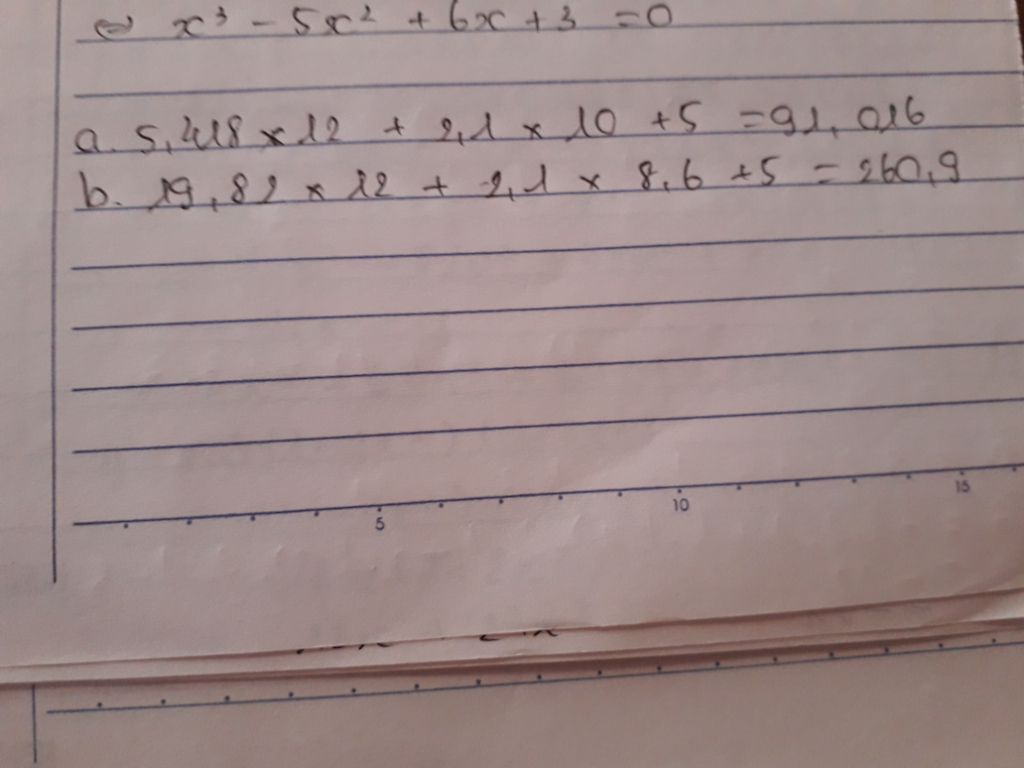 ⇔ x³ - 5x² + 6x + 3 = 0
a. 5,418 × 12 + 2,1 × 10 + 5 = 91,016
b. 19,82 × 12 + 2,1 × 8,6 + 5 = 260,9
5 10 15